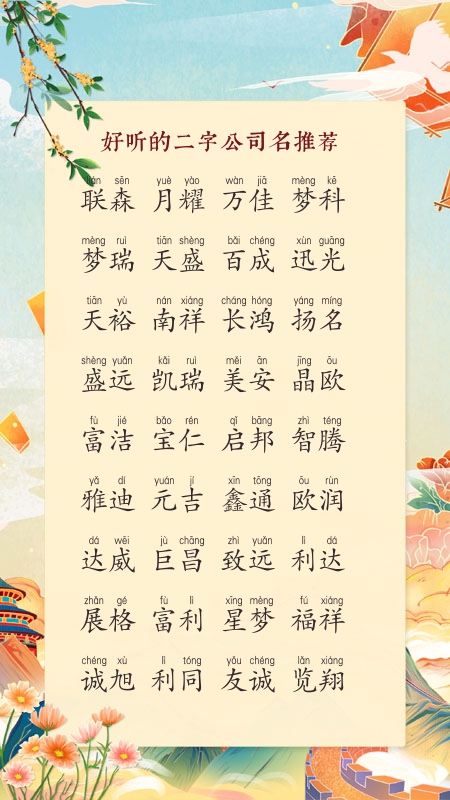 好听的二字公司名推荐
lián sēn yuè yào wàn jiā mèng kē
联森 月耀 万佳 梦科
mèng ruì tiān shèng bǎi chéng xùn guāng
梦瑞 天盛 百成 迅光
tiān yù nán xiáng cháng hóng yáng míng
天裕 南祥 长鸿 扬名
shèng yuǎn kǎi ruì měi ān jīng ōu
盛远 凯瑞 美安 晶欧
fù jié bǎo rén qǐ bāng zhì téng
富洁 宝仁 启邦 智腾
yǎ dí yuán jí xīn tōng ōu rùn
雅迪 元吉 鑫通 欧润
dá wēi jù chāng zhì yuǎn lì dá
达威 巨昌 致远 利达
zhǎn gé fù lì xīng mèng fú xiáng
展格 富利 星梦 福祥
chéng xù lì tóng yǒu chéng lǎn xiáng
诚旭 利同 友诚 览翔